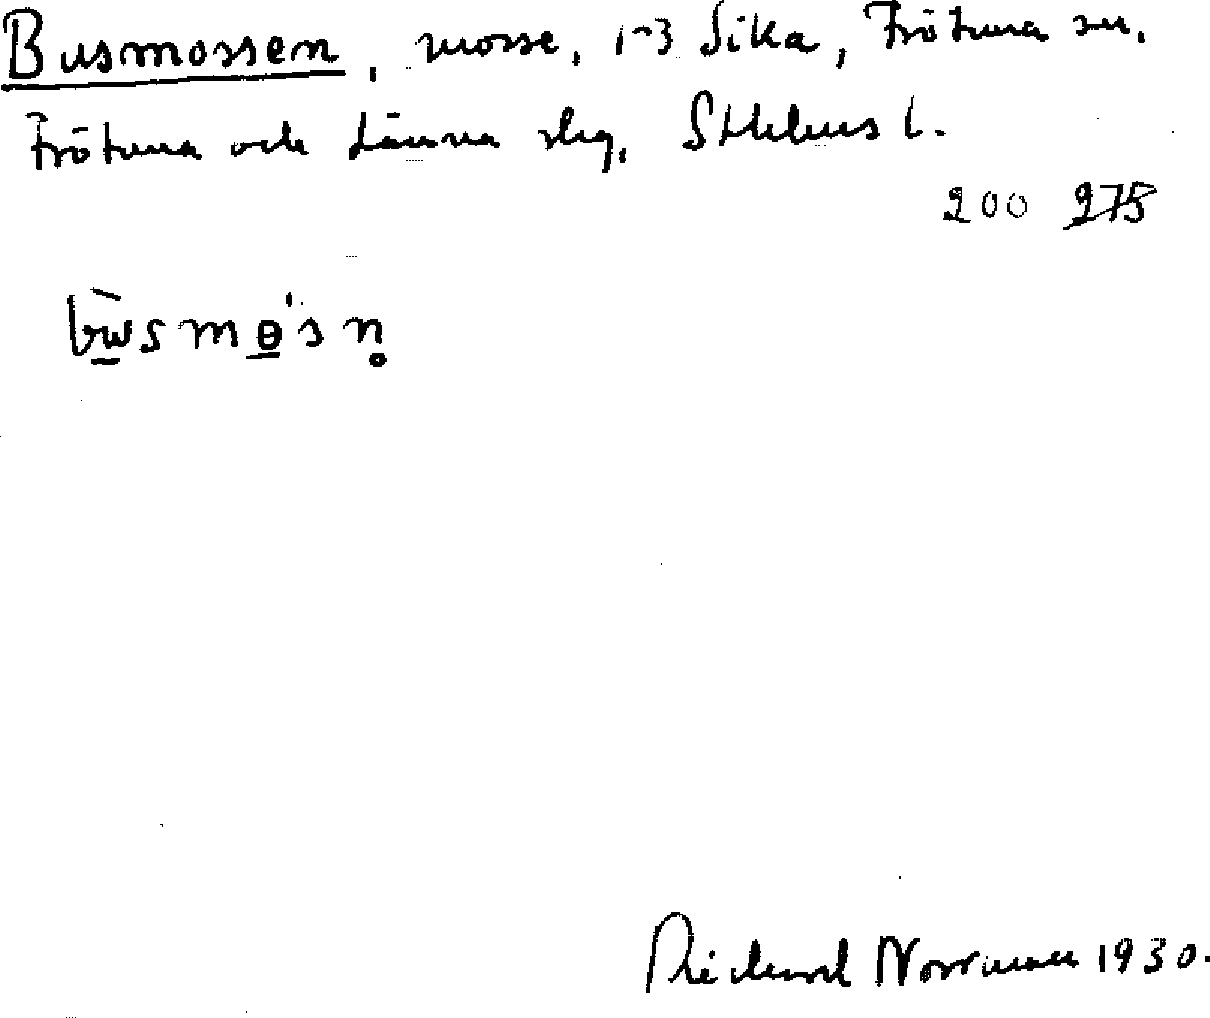 Busmossen, mosse, 1-3 Sika, Frötuna sn,
Frötuna och Länna slg, Sthlms l.
200 275
bùsmɵ'sn̥
Richard Norrman 1930.